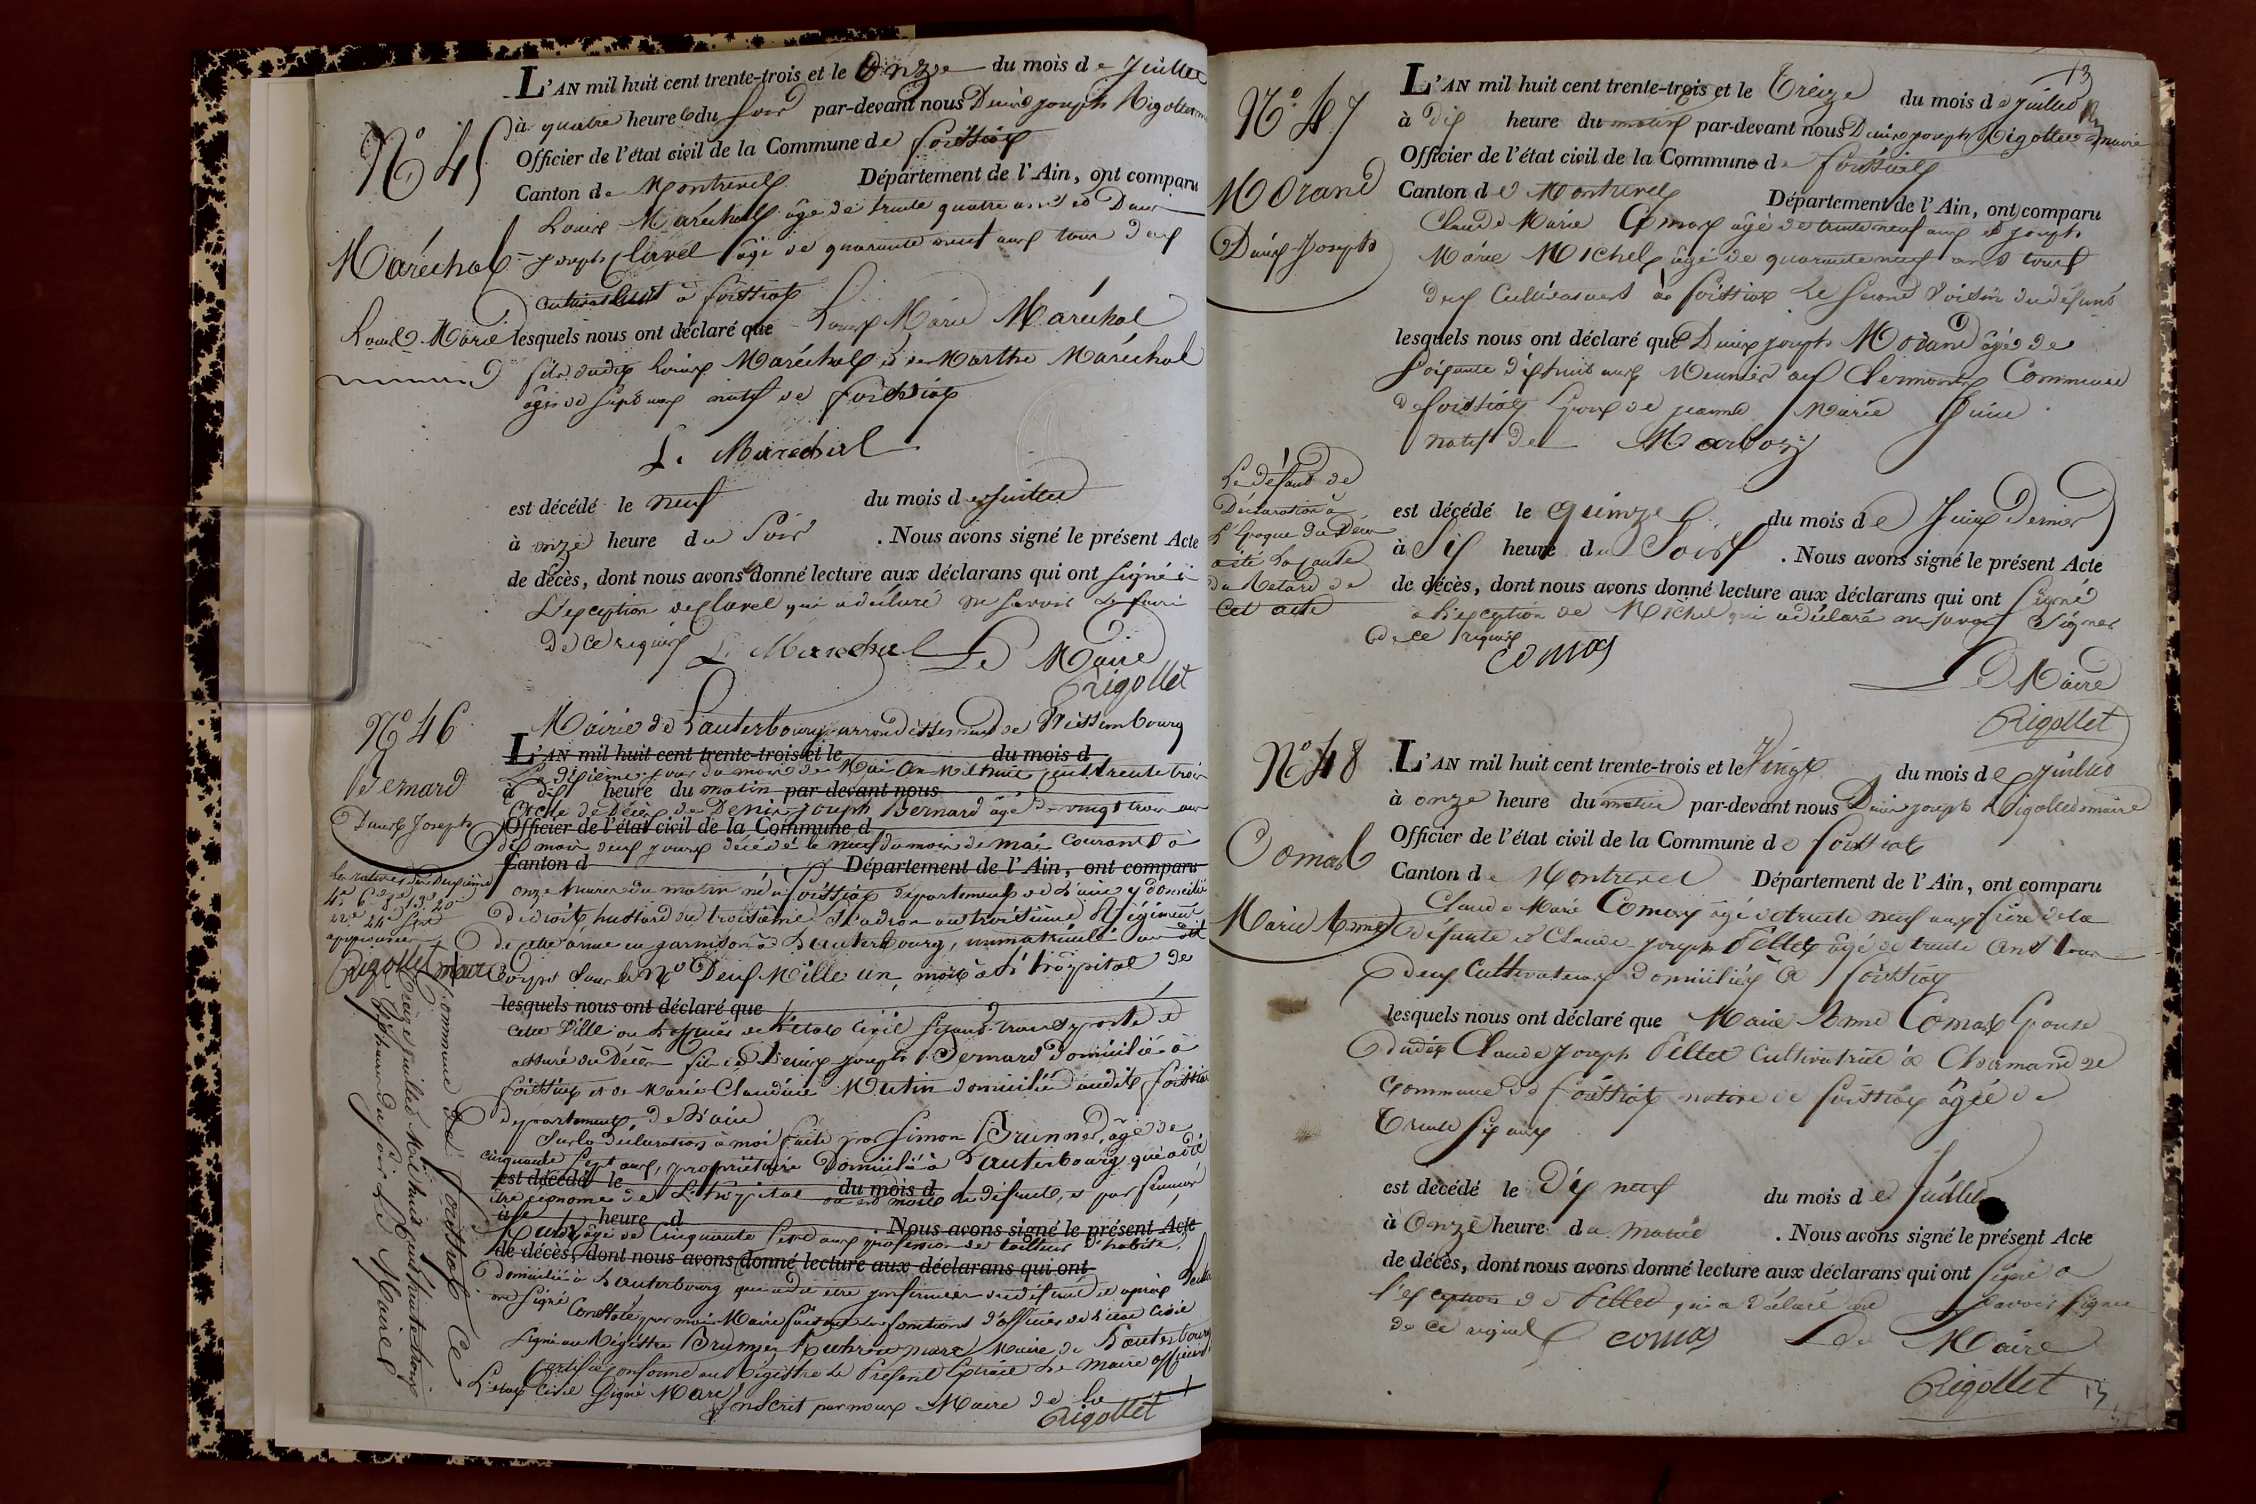 L'AN mil huit cent trente-trois et le Onze du mois de Juillet
à quatre heures du soir par-devant nous Denis joseph Rigollet
Officier de l'état civil de la Commune de foissiat
Canton de Montrevel Département de l'Ain, ont comparu
N.° 45
Maréchal
Louis Marie
Louis Maréchal âgé de trente quatre ans et Denis
joseph Clavel âgé de quarante neuf ans tous deux
cultivateurs à foissiat
lesquels nous ont déclaré que Louis Marie Maréchal
fils dudit Louis Maréchal et de Marthe Maréchal
âgé de sept ans natif de foissiat
L. Marechal
est décédé le neuf du mois de juillet
à onze heure du soir . Nous avons signé le présent Acte
de décès, dont nous avons donné lecture aux déclarans qui ont signé à
L'exception de Clavel qui a déclaré ne savoir le faire
De ce requis L. Marechal Le Maire
Rigollet
N.° 46
Bernard
Denis Joseph
Mairie de Lauterbourg arrondissement de Wissembourg
L'AN mil huit cent trente-trois et le du mois d
Le dixième jour du mois de Mai An Mil huit cent trente trois
à dix heure du matin par-devant nous
Acte de Décès de Denis Joseph Bernard âgé de vingt trois ans
Officier de l'état civil de la Commune d
dix mois deux jours décédé le neuf du mois de mai courant à
Canton d Département de l'Ain, ont comparu
onze heures du matin né à foissiat département de L'ain y domicilié
de droit, hussard du troisième Escadron au troisième Régiment
de cette arme en garnison à Lauterbourg, immatriculé au dit
corps sous le N.° Deux Mille un, mort à L'hôpital de
lesquels nous ont déclaré que
cette Ville ou L'officier de L'état Civil s'étant transporté
assuré du Décès fils de Denis joseph Bernard domicilié à
foissiat et de Marie Claudine Mutin domiciliée audit foissiat
département de L'ain
Sur la déclaration à moi faite par Simon Brunner, âgé de
cinquante sept ans, propriétaire Domicilié à Lauterbourg qui a dit
est décédé le du mois d
être économe de L'hôpital du défunt, et par
à heure d . Nous avons signé le présent Acte
âgé de cinquante sept ans profession de tailleur d'habits
de décès, dont nous avons donné lecture aux déclarans qui ont
domicilié à Lauterbourg qui a dit être infirmier du défunt et après
ont signé Constaté par moi Maire faisant les fonctions d'officier de L'état Civil
Signé au Régistre Brunner Maire de Lauterbourg
Certifié conforme au Régistre le Présent Extrait Le Maire officier
L'état Civil Signé Marc
Inscrit par nous Maire de la
Rigollet
approuvée
Rigollet maire
Commune de foissiat Ce
treize juillet Mil huit cent trente trois
heures du soir Le Maire
13
N.° 47
Morand
Denis Joseph
L'AN mil huit cent trente-trois et le Treize du mois de juillet
à dix heure du matin par-devant nous Denis joseph Rigollet maire
Officier de l'état civil de la Commune de foissiat
Canton de Montrevel Département de l'Ain, ont comparu
Claude Marie Comas âgé de trente neuf ans et joseph
Marie Michel âgé de quarante neuf ans tous
deux Cultivateurs à foissiat Le second Voisin du défunt
lesquels nous ont déclaré que Denis joseph Morand âgé de
soixante dix huit ans Meunier au Clermont Commune
de foissiat Epoux de jeanne Marie
natif de Marboz
Le défaut de
Déclaration à
L'Epoque du Décès
a été La cause
du Retard de
Cet acte
est décédé le quinze du mois de Juin Dernier
à six heure du Soir . Nous avons signé le présent Acte
de décès, dont nous avons donné lecture aux déclarans qui ont Signé
à L'exception de Michel qui a déclaré ne savoir Signer
de ce requis
comas
Le Maire
Rigollet
N.° 48
Comas
Marie Anne
L'AN mil huit cent trente-trois et le Vingt du mois de juillet
à onze heure du matin par-devant nous Denis joseph Rigollet maire
Officier de l'état civil de la Commune de foissiat
Canton de Montrevel Département de l'Ain, ont comparu
Claude Marie Comas âgé de trente neuf ans frère de la
défunte et Claude joseph Pellet âgé de trente ans tous
deux Cultivateurs domiciliés à foissiat
lesquels nous ont déclaré que Marie Anne Comas Epouse
dudit Claude Joseph Pellet Cultivatrice à Charmande
Commune de foissiat native de foissiat âgée de
Trente six ans
est décédé le Dix neuf du mois de Juillet
à Onze heure du matin . Nous avons signé le présent Acte
de décès, dont nous avons donné lecture aux déclarans qui ont signé à
l'exception de Pellet qui a déclaré ne savoir signer
de ce requis comas Le Maire
Rigollet